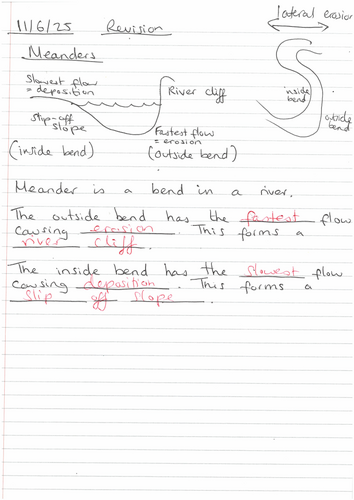 lateral erosion
11/6/25 Revision
Meanders
Slowest flow
= deposition
River cliff
inside
bend
outside
bend
Slip-off
slope
Fastest flow
= erosion
(inside bend)
(outside bend)
Meander is a bend in a river.
The outside bend has the fastest flow
causing erosion. This forms a
river cliff.
The inside bend has the slowest flow
causing deposition. This forms a
slip off slope.